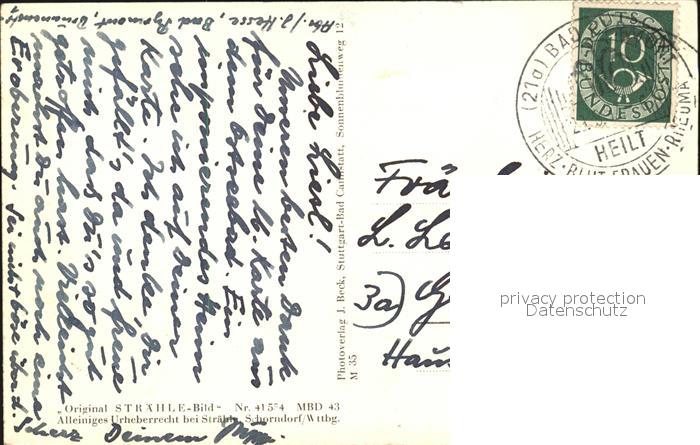 Abs./J. Hesse, Bad Pyrmont,
Liebe Liesl!
Unseren besten Dank
für Deine lb. Karte aus
dem Ostseebad. Ein
imponierendes Heim
sehe ich auf Deiner
Karte. Ich denke Dir
gefällt's da und freue
mich das Du's so gut
getroffen hast. Vielleicht
machst Du auch eine
Eroberung. Sei nicht böse über d.
Scherz Deinem
„Original STRÄHLE-Bild" Nr. 41554 MBD 43
Alleiniges Urheberrecht bei Strähle, Schorndorf/Wttbg.
Photoverlag J. Beck, Stuttgart-Bad Cannstatt, Sonnenblumenweg 12
M 35
10
DEUTSCHE
BUNDESPOST
(21a) BAD PYRMONT
HEILT
HERZ·BLUT·FRAUEN·RHEUMA
Frä
L.
3a)
Han
privacy protection
Datenschutz